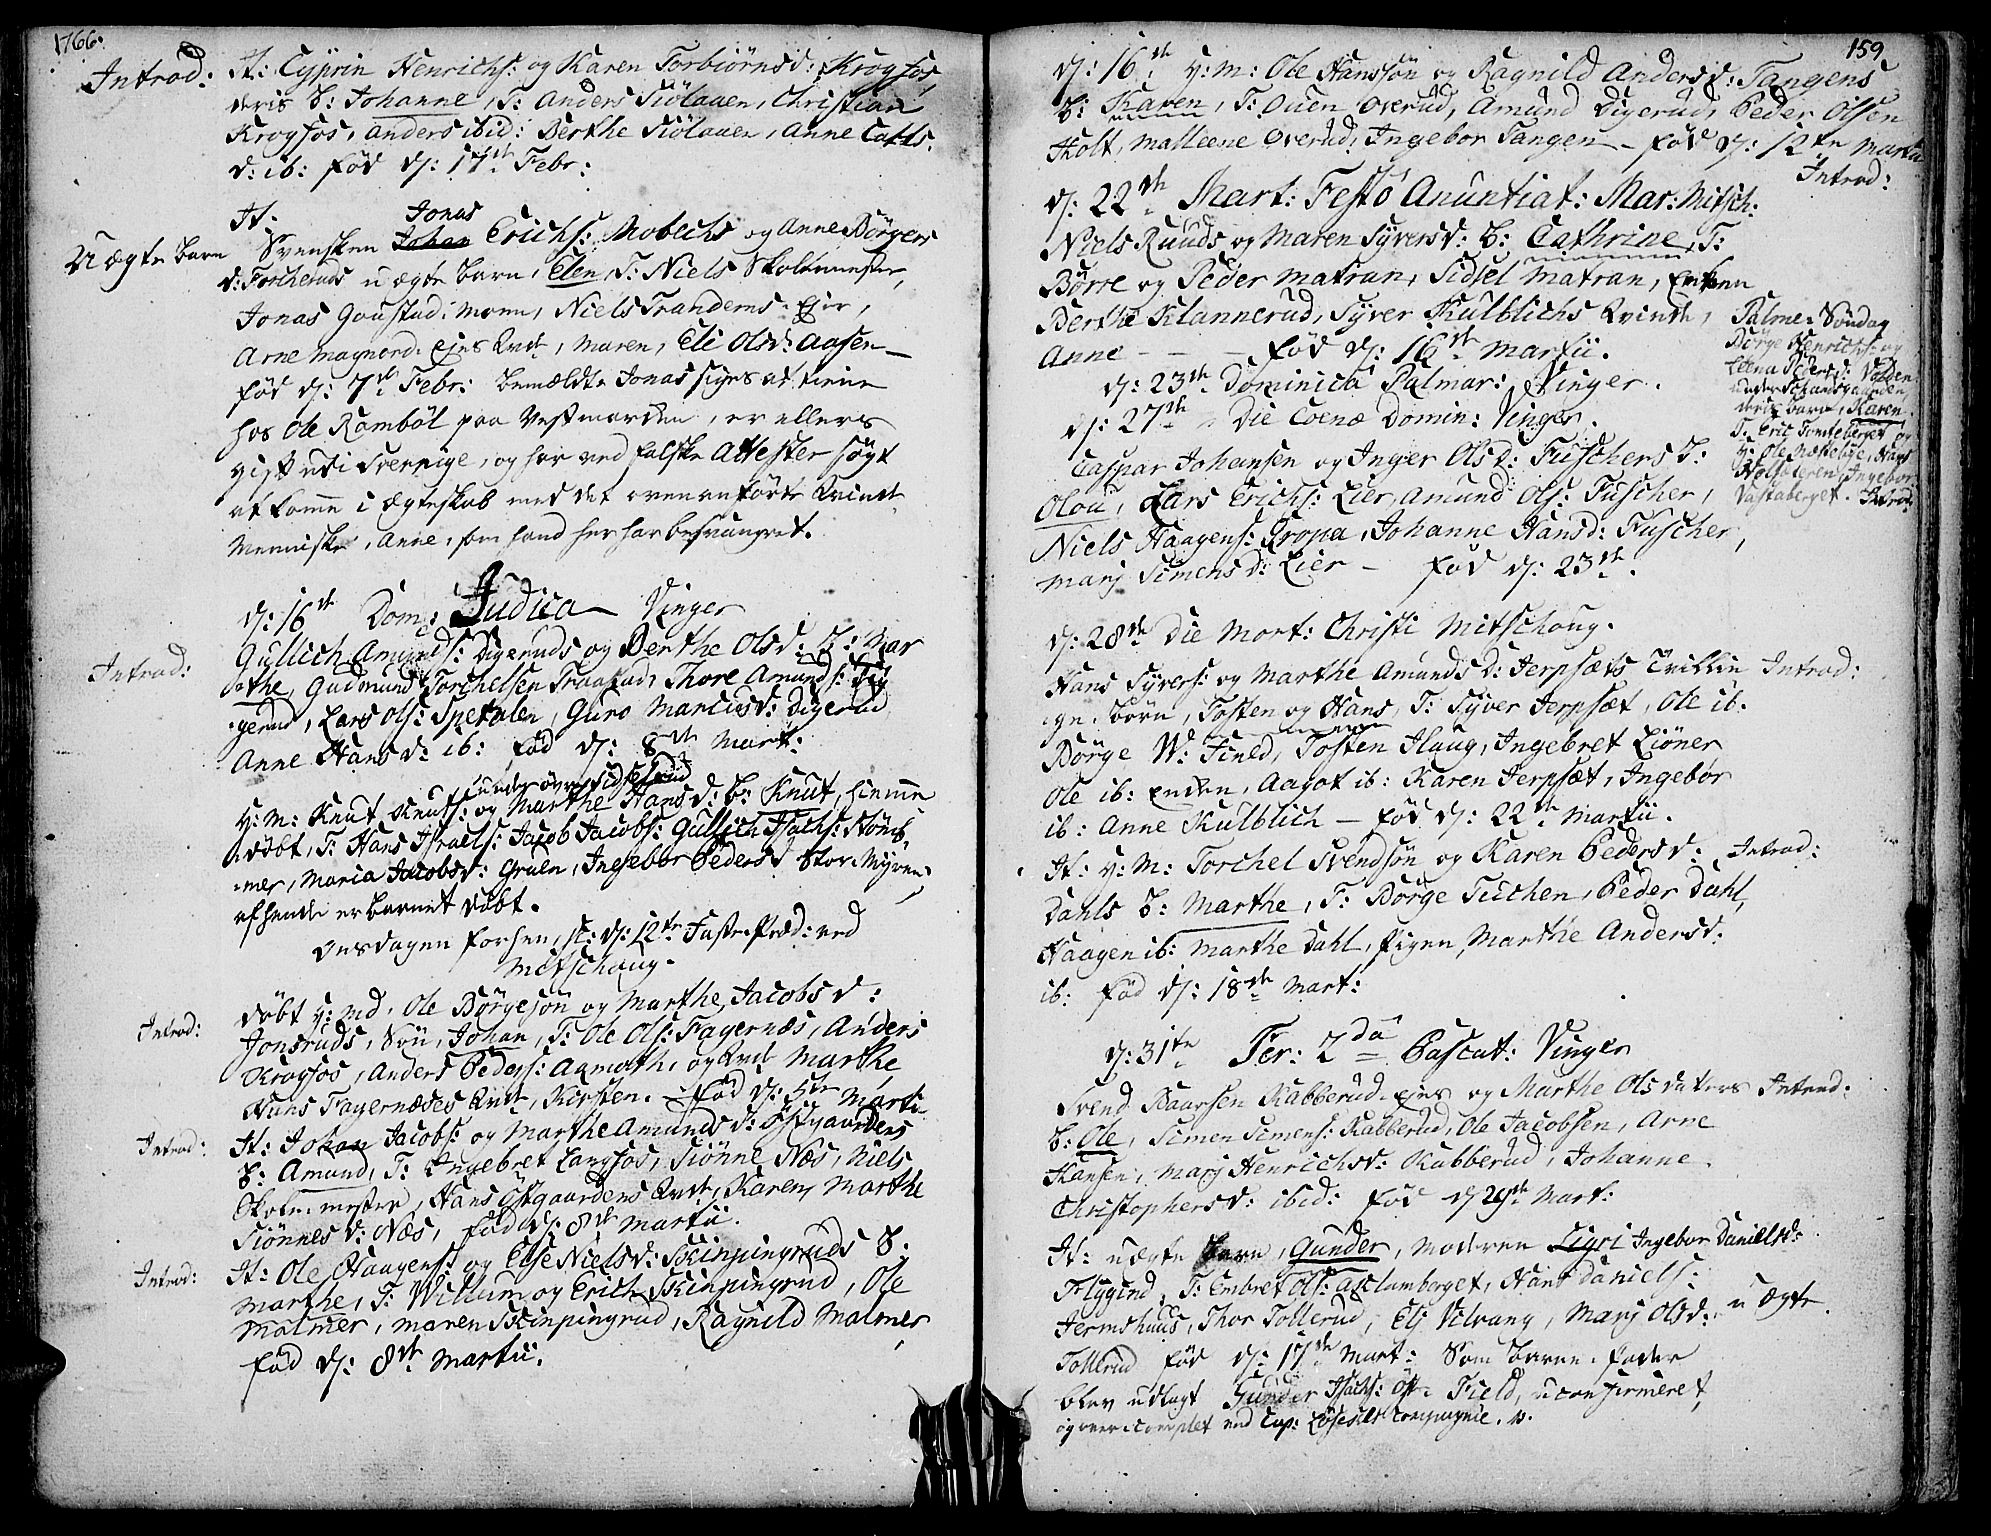 1766.
Introd: It: Cyprin Henrichs: og Karen Torbiörnsd: Krogsos,
deris B: Johanne, T: Anders Siölauen, Christian
Krogsos, Anders ibid: Berthe Siölauen, Anne Carls
d: ib: fød d: 17de Febr:
It: Jonas
Uægte Barn Svensken Johan Erichs: Mobechs og Anne Börgers
d: Torcheruds uægte Barn, Elen, T: Niels Skolemester,
Jonas Goustad, Niels Tranderns Eie,
Arne Magnord Ejes Qvde, Maren, Eli Olsd: Aasen
fød d: 7de Febr: bemældte Jonas siges at tiene
hos Ole Rambøl paa Vestmarchen, er ellers
gift udi Sverrige, og har ved falske Attester søgt
at komme i Ægteskab med det ovenanførte Qvinde
Menniske, Anne, som hand her har besvangret.
d: 16de Dom: Judica Vinger
Introd: Gullich Amunds: Digeruds og Berthe Olsd: B: Mar
the, Gudmund Torchelsen Traastad, Thore Amunds: Di
gerud, Lars Ols: Spetalen, Guro Marcusd: Digerud
Anne Hansd: ib: fød d: 8de Mart:
under øvre Sidselrud
H: M: Knut Knuts: og Marthe Hansd: B: Knut, hiemme
døbt, T: Hans Israels: Jacob Jacobs: Gullich Isachs: Stöm
mer, Maria Jacobsd: Graln, Ingebor Pedersd Stor-Myren
af hende er Barnet døbt.
Onsdagen forhen, sc: d: 12te Faste-Præd: ved
Mitschoug.
Introd: døbt H: Md. Ole Börgesön og Marthe Jacobsd:
Jonsruds, Sön, Johan, T: Ole Ols: Fagernæs, Anders
Krogsos, Anders Peders: Agmoth, og Qvde Marthe,
Hans Fagernæses Qvde, Kirsten. – fød d: 5te Marti
Introd: It: Johan Jacobs: og Marthe Amundsd: Östgaardens
B: Amund, T: Ingebret Langsos, Siönne Næs, Niels
Skolemester, Hans Östgaardens Qvde, Karen, Marthe
Siönnesd: Næs, fød d: 8de Martii.
Introd: It: Ole Haagens: og Else Nielsd: Skinpingruds B:
Marthe, T: Willum og Erich Skinpingrud, Ole
Malmer, Maren Skinpingrud, Ragnild Malmer,
fød d: 8de Martii.
159
d: 16de H: M: Ole Hanssön og Ragnild Andersd: Tangens
B: Karen, T: Ouen Overud, Amund Digerud, Peder Olsen
Holt, Malleene Overud, Ingebor Tangen – fød d: 12te Martii
Introd:
d: 22de Mart: Festo Anuntiat: Mar: Mitsch:
Niels Ruuds og Maren Syversd: B: Cathrine, T:
Börre og Peder Matran, Sidsel Matran, Enken
Berthe Klannerud, Syver Kulblichs Qvinde,
Anne – – – fød d: 16de Martii.
Palme-Söndag
Börge Henrichs: og
Leena Pedersd: Volden
under Schansgaarden
deris Barn, Karen,
T: Eric Tomteberget og
H: Ole Næstebye, Hans
Holsæteren, Ingebor
Vastaberget. Introd:
d: 23de Dominica Palmar: Vinger.
d: 27de – Die Coenæ Domin: Vinger.
Caspar Johansen og Inger Olsd: Fuschers B:
Olou, Lars Erichs: Lier, Amund Ols: Fuscher,
Niels Haagens: Gropa, Johanne Hansd: Fuscher,
Marj Simensd: Lier – fød d: 23de.
d: 28de Die Mort: Christi Mitschoug.
Hans Syvers: og Marthe Amundsd: Jerpsæts Tvillin Introd:
ge-Börn, Tosten og Hans, T: Syver Jerpsæt, Ole ib.
Börge W: Field, Tosten Haug, Ingebret Liöner
Ole ib: Enken, Aagot ib: Karen Jerpsæt, Ingebör
ib: Anne Kulblich – fød d: 22de Martii.
It: H: M: Torchel Svendsön og Karen Pedersd: Introd:
Dahls B: Marthe, T: Börge Tuchen, Peder Dahl,
Haagen ib: Marthe Dahl, Pigen Marthe Andersd:
ib: fød d: 18de Mart:
d: 31te Fer: 2da Pascat: Vinger
Svend Baarsen Kabberud-Ejes og Marthe Olsdatters Introd:
B: Ole, Simen Simens: Kabberud, Ole Jacobsen, Arne
Hansen, Marj Henrichsd: Kabberud, Johanne
Christophersd: ibid: fød d 29de Mart:
It: uægte Barn, Gunder, Moderen Ligri Ingebor Danielsd:
Flygind, T: Embret Ols: Aslamberget, Hans Daniels:
Jermshuus, Thor Tollerud, Elj Vilvang, Marj Olsd: uægte.
Tollerud fød d: 17de Mart: Som Barne-Fader
blev udlagt Gunder Isachs: Öst-Field, uconfirmeret,
og over-Complet ved Cap: Løsels Compagnie.